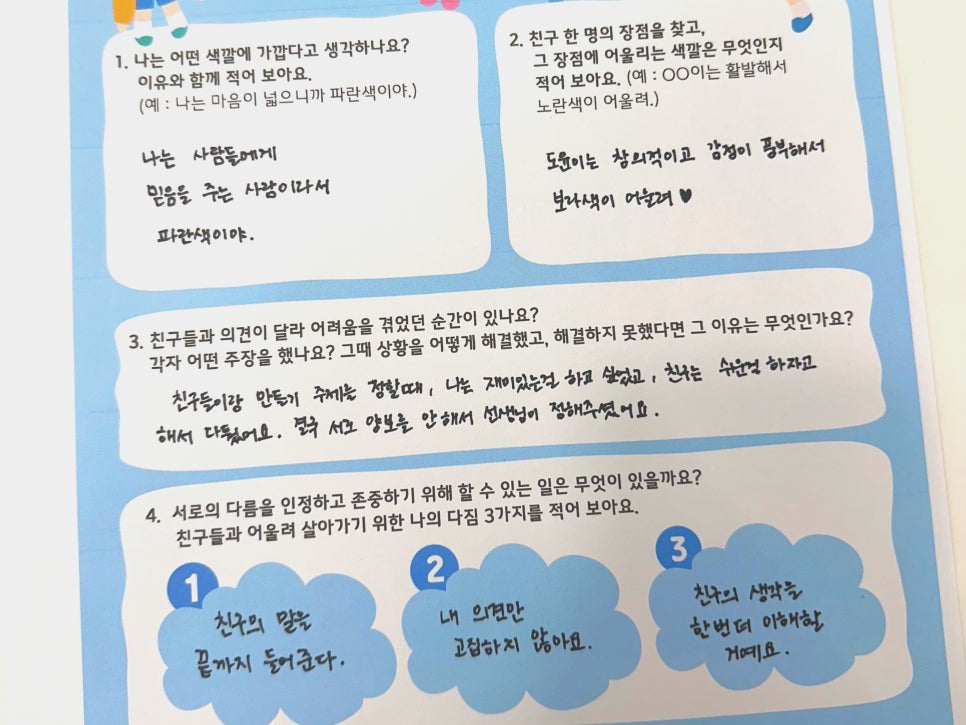 1. 나는 어떤 색깔에 가깝다고 생각하나요?
이유와 함께 적어 보아요.
(예 : 나는 마음이 넓으니까 파란색이야.)
나는 사람들에게
믿음을 주는 사람이라서
파란색이야.
2. 친구 한 명의 장점을 찾고,
그 장점에 어울리는 색깔은 무엇인지
적어 보아요. (예 : ○○이는 활발해서
노란색이 어울려.)
도윤이는 창의적이고 감정이 풍부해서
보라색이 어울려 ♥
3. 친구들과 의견이 달라 어려움을 겪었던 순간이 있나요?
각자 어떤 주장을 했나요? 그때 상황을 어떻게 해결했고, 해결하지 못했다면 그 이유는 무엇인가요?
친구들이랑 만들기 주제를 정할때, 나는 재미있는걸 하고 싶었고, 친구는 쉬운걸 하자고
해서 다퉜어요. 결국 서로 양보를 안해서 선생님이 정해주셨어요.
4. 서로의 다름을 인정하고 존중하기 위해 할 수 있는 일은 무엇이 있을까요?
친구들과 어울려 살아가기 위한 나의 다짐 3가지를 적어 보아요.
1
친구의 말을
끝까지 들어준다.
2
내 의견만
고집하지 않아요.
3
친구의 생각을
한번더 이해할
거예요.